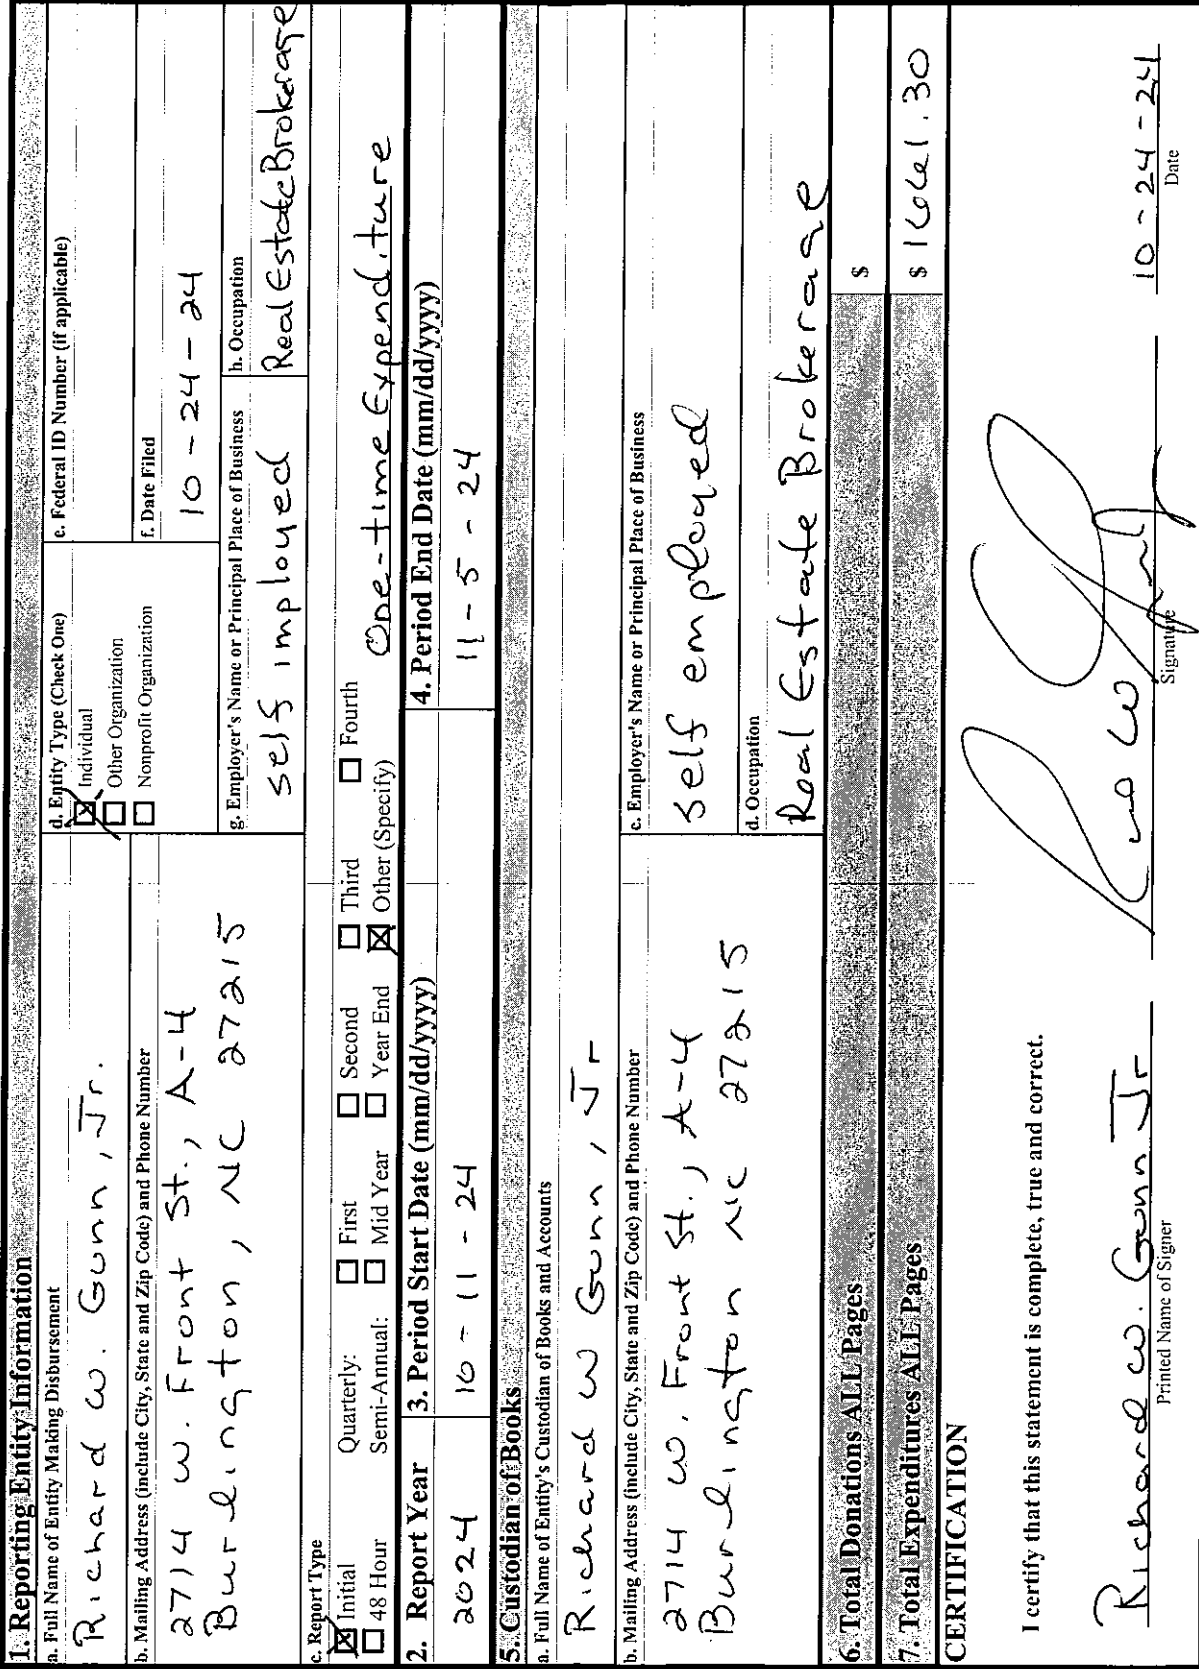 1. Reporting Entity Information
a. Full Name of Entity Making Disbursement
Richard W. Gunn, Jr.
b. Mailing Address (include City, State and Zip Code) and Phone Number
2714 W. Front St., A-4
Burlington, NC 27215
d. Entity Type (Check One)
☒ Individual
☐ Other Organization
☐ Nonprofit Organization
e. Federal ID Number (if applicable)
f. Date Filed
10-24-24
g. Employer's Name or Principal Place of Business
self imployed
h. Occupation
Real Estate Brokerage
c. Report Type
☒ Initial
☐ 48 Hour
Quarterly: ☐ First ☐ Second ☐ Third ☐ Fourth
Semi-Annual: ☐ Mid Year ☐ Year End ☒ Other (Specify) One-time Expenditure
2. Report Year
2024
3. Period Start Date (mm/dd/yyyy)
10-11-24
4. Period End Date (mm/dd/yyyy)
11-5-24
5. Custodian of Books
a. Full Name of Entity's Custodian of Books and Accounts
Richard W Gunn, Jr
b. Mailing Address (include City, State and Zip Code) and Phone Number
2714 W. Front St., A-4
Burlington NC 27215
c. Employer's Name or Principal Place of Business
self employed
d. Occupation
Real Estate Brokerage
6. Total Donations ALL Pages $
7. Total Expenditures ALL Pages $
CERTIFICATION
I certify that this statement is complete, true and correct.
Richard W. Gunn Jr
Printed Name of Signer
Signature
10-24-24
Date